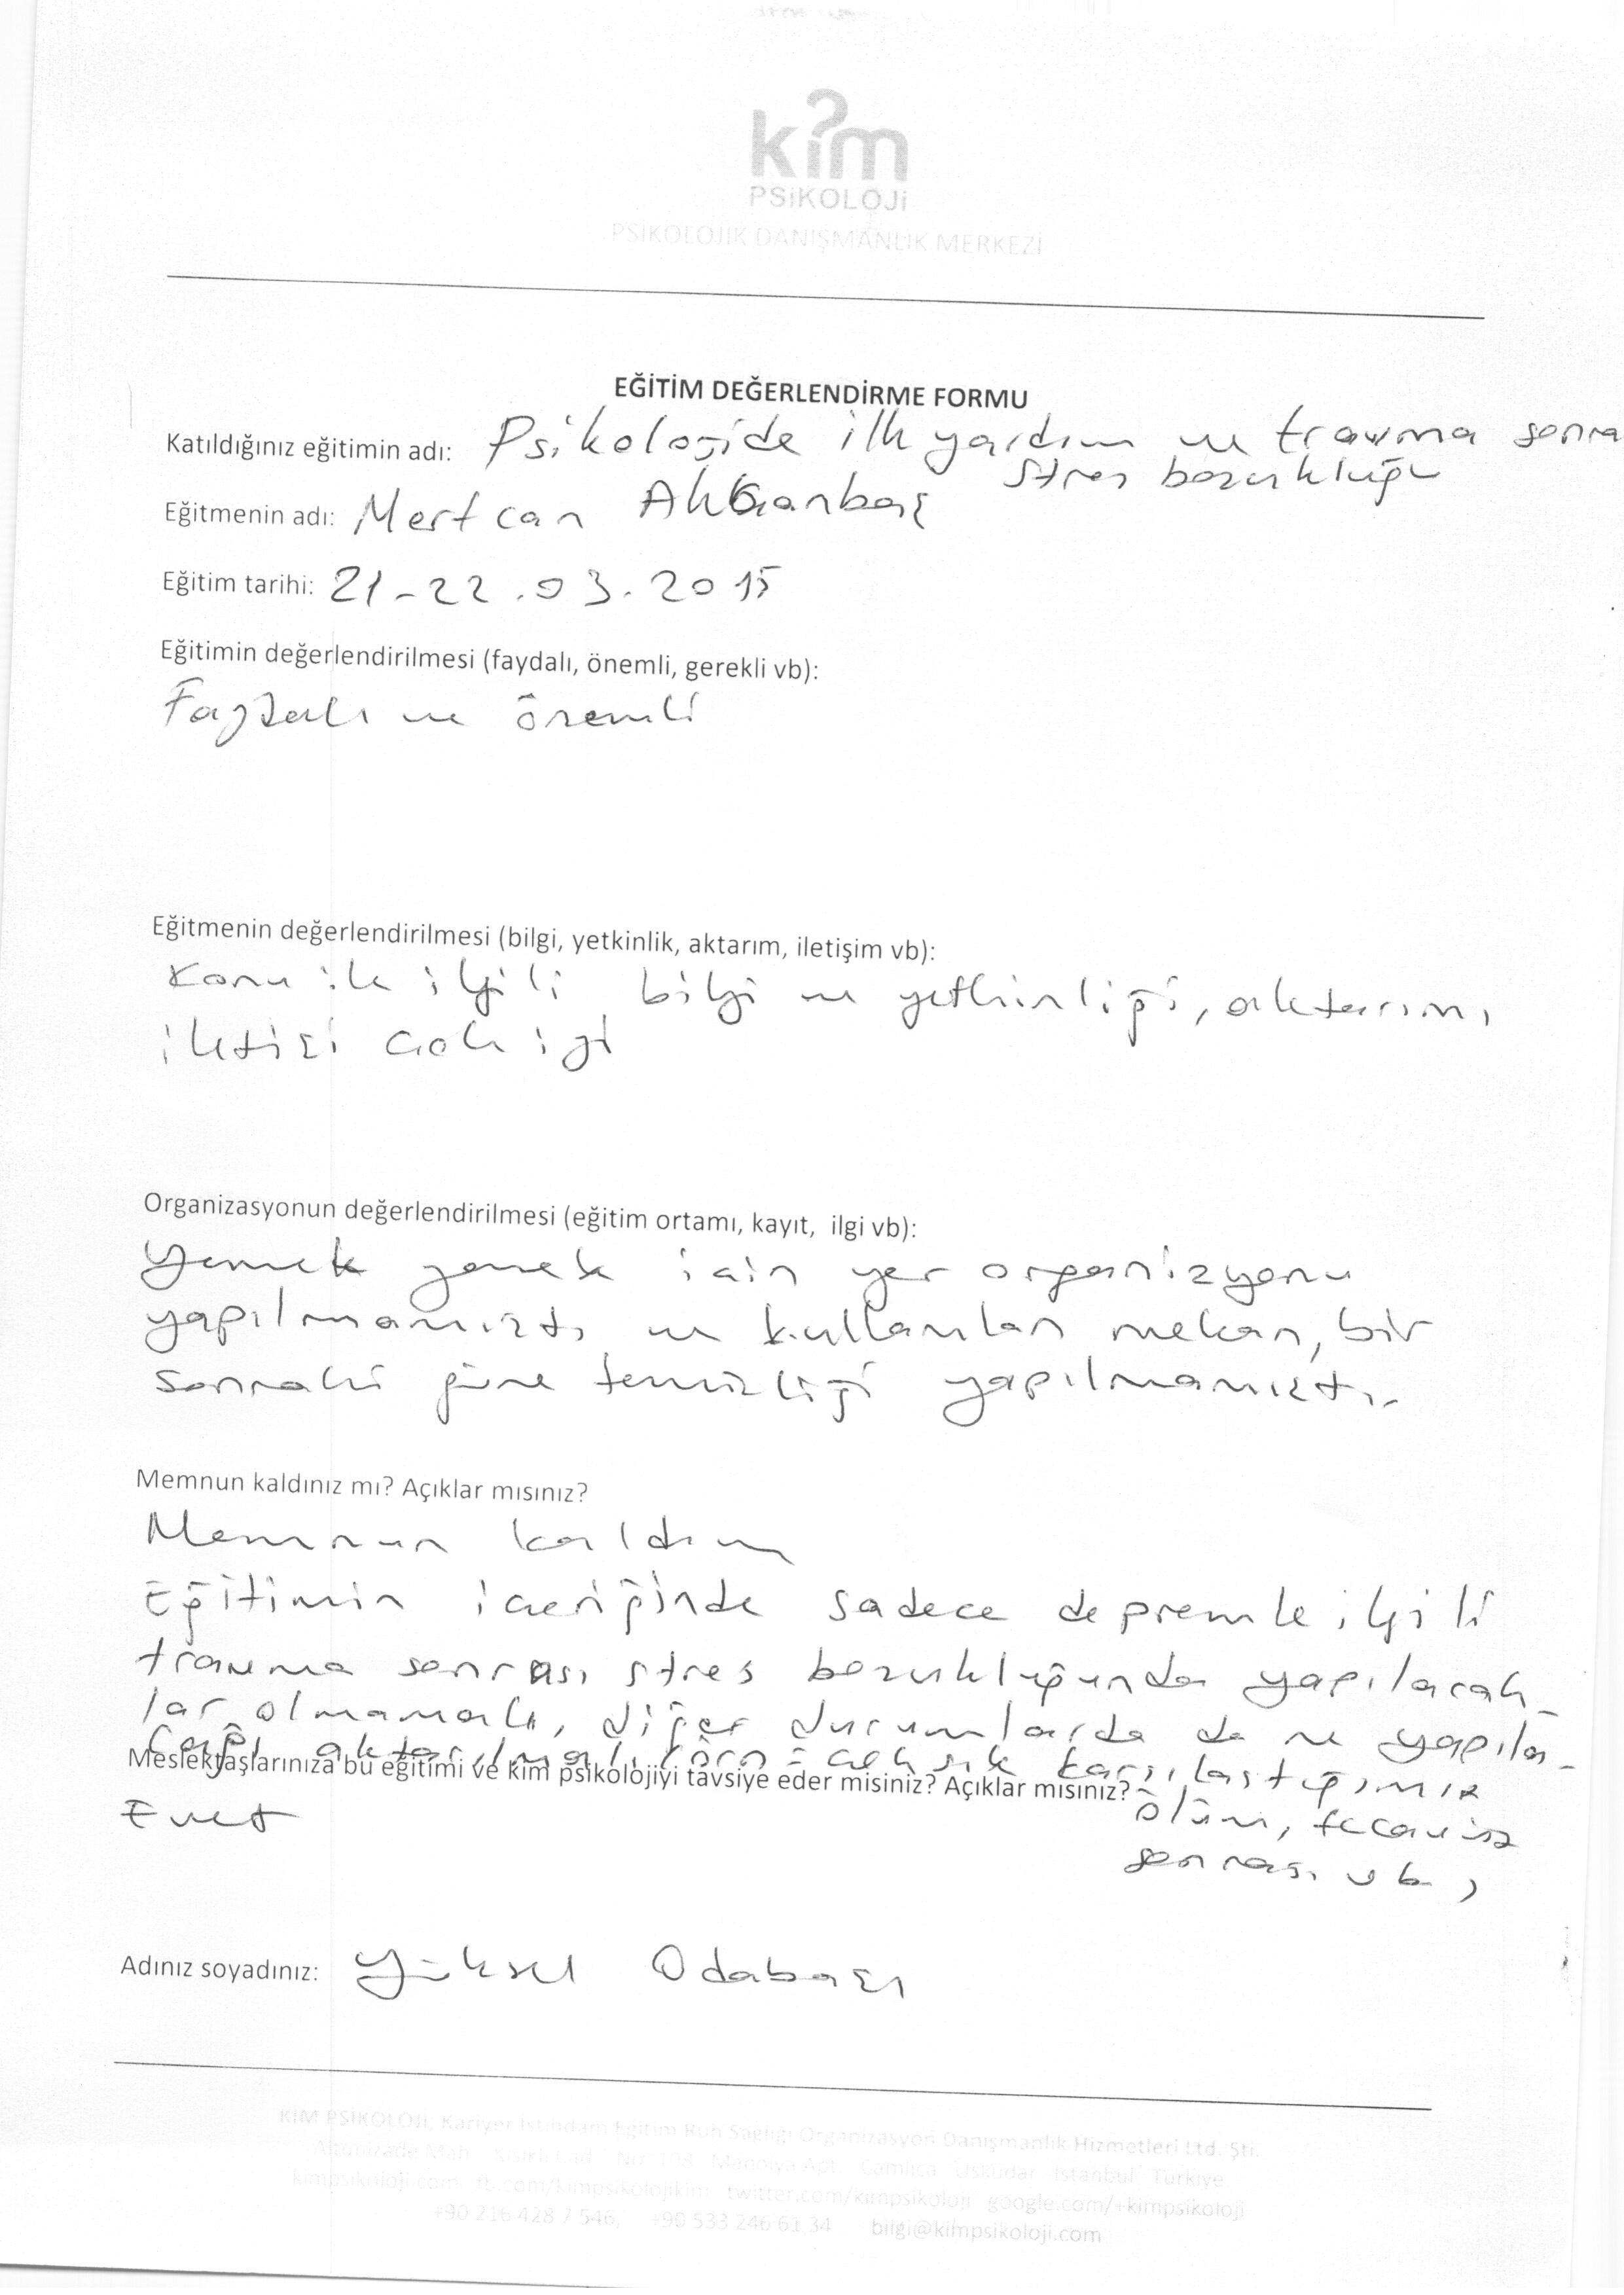 kim
PSiKOLOJi
PSİKOLOJİK DANIŞMANLIK MERKEZİ
EĞİTİM DEĞERLENDİRME FORMU
Katıldığınız eğitimin adı: Psikolojide ilk yardım ve travma sonra
stres bozukluğu
Eğitmenin adı: Mertcan
Eğitim tarihi: 21-22.03.2015
Eğitimin değerlendirilmesi (faydalı, önemli, gerekli vb):
Faydalı ve önemli
Eğitmenin değerlendirilmesi (bilgi, yetkinlik, aktarım, iletişim vb):
Konu ile ilgili bilgi ve yetkinliği, aktarımı
iletişi çok iyi
Organizasyonun değerlendirilmesi (eğitim ortamı, kayıt, ilgi vb):
Yemek yemek için yer organizyonu
yapılmamıştı ve kullanılan mekan, bir
sonraki güne temizliği yapılmamıştı.
Memnun kaldınız mı? Açıklar mısınız?
Memnun kaldım
Eğitimin içeriğinde sadece depremle ilgili
travma sonrası stres bozukluğunda yapılacak-
lar olmamalı, diğer durumlarda da ne yapıla-
cağı aktarılmalı (örn = çok sık karşılaştığımız
Meslektaşlarınıza bu eğitimi ve kim psikolojiyi tavsiye eder misiniz? Açıklar mısınız?
ölüm, tecavüz
Evet
sonrası vb)
Adınız soyadınız: Yüksel Odabaşı
KİM PSİKOLOJİ, Kariyer İstihdam Eğitim Ruh Sağlığı Organizasyon Danışmanlık Hizmetleri Ltd. Şti.
Altunizade Mah. Manolya Apt. Çamlıca Üsküdar İstanbul Türkiye
kimpsikoloji.com fb.com/kimpsikolojikim twitter.com/kimpsikoloji google.com/+kimpsikoloji
+90 216 428 7 546, +90 533 246 61 34 bilgi@kimpsikoloji.com